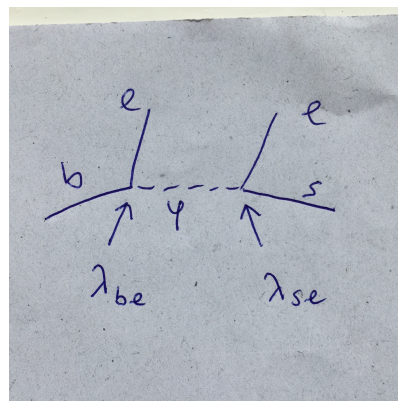 e e
b s
φ
λbe λse